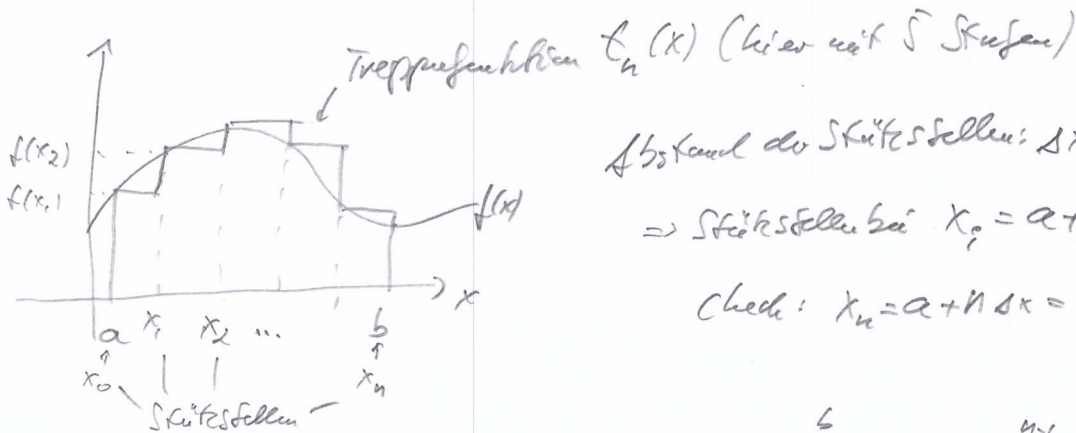 Treppenfunktion t_n(x) (hier mit 5 Stufen)
f(x_2)
f(x_1)
f(x)
x
a x_1 x_2 ... b
x_0 x_n
Stützstellen
Abstand der Stützstellen: Δx
=> Stützstellen bei x_i = a +
Check: x_n = a + n Δx =
b